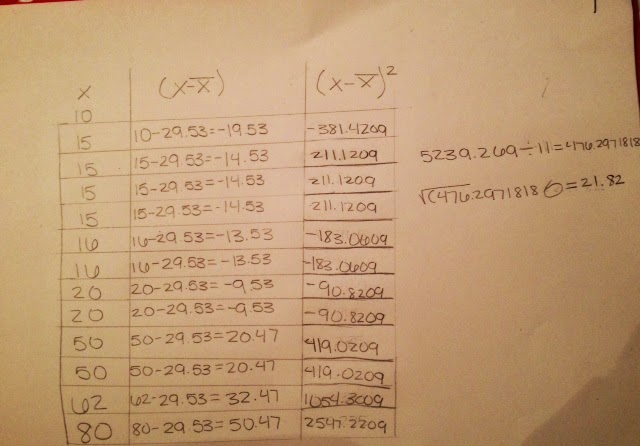 x (x-x̅) (x-x̅)²
10
15 10-29.53=-19.53 -381.4209
15 15-29.53=-14.53 211.1209
15 15-29.53=-14.53 211.1209
15 15-29.53=-14.53 211.1209
16 16-29.53=-13.53 -183.0609
16 16-29.53=-13.53 -183.0609
20 20-29.53=-9.53 -90.8209
20 20-29.53=-9.53 -90.8209
50 50-29.53=20.47 419.0209
50 50-29.53=20.47 419.0209
62 62-29.53=32.47 1054.3009
80 80-29.53=50.47 2547.2209
5239.269÷11=476.2971818
√(476.29718186=21.82